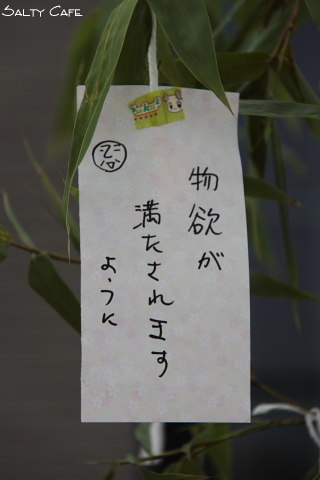 SALTY CAFE
物欲が
満たされます
ように